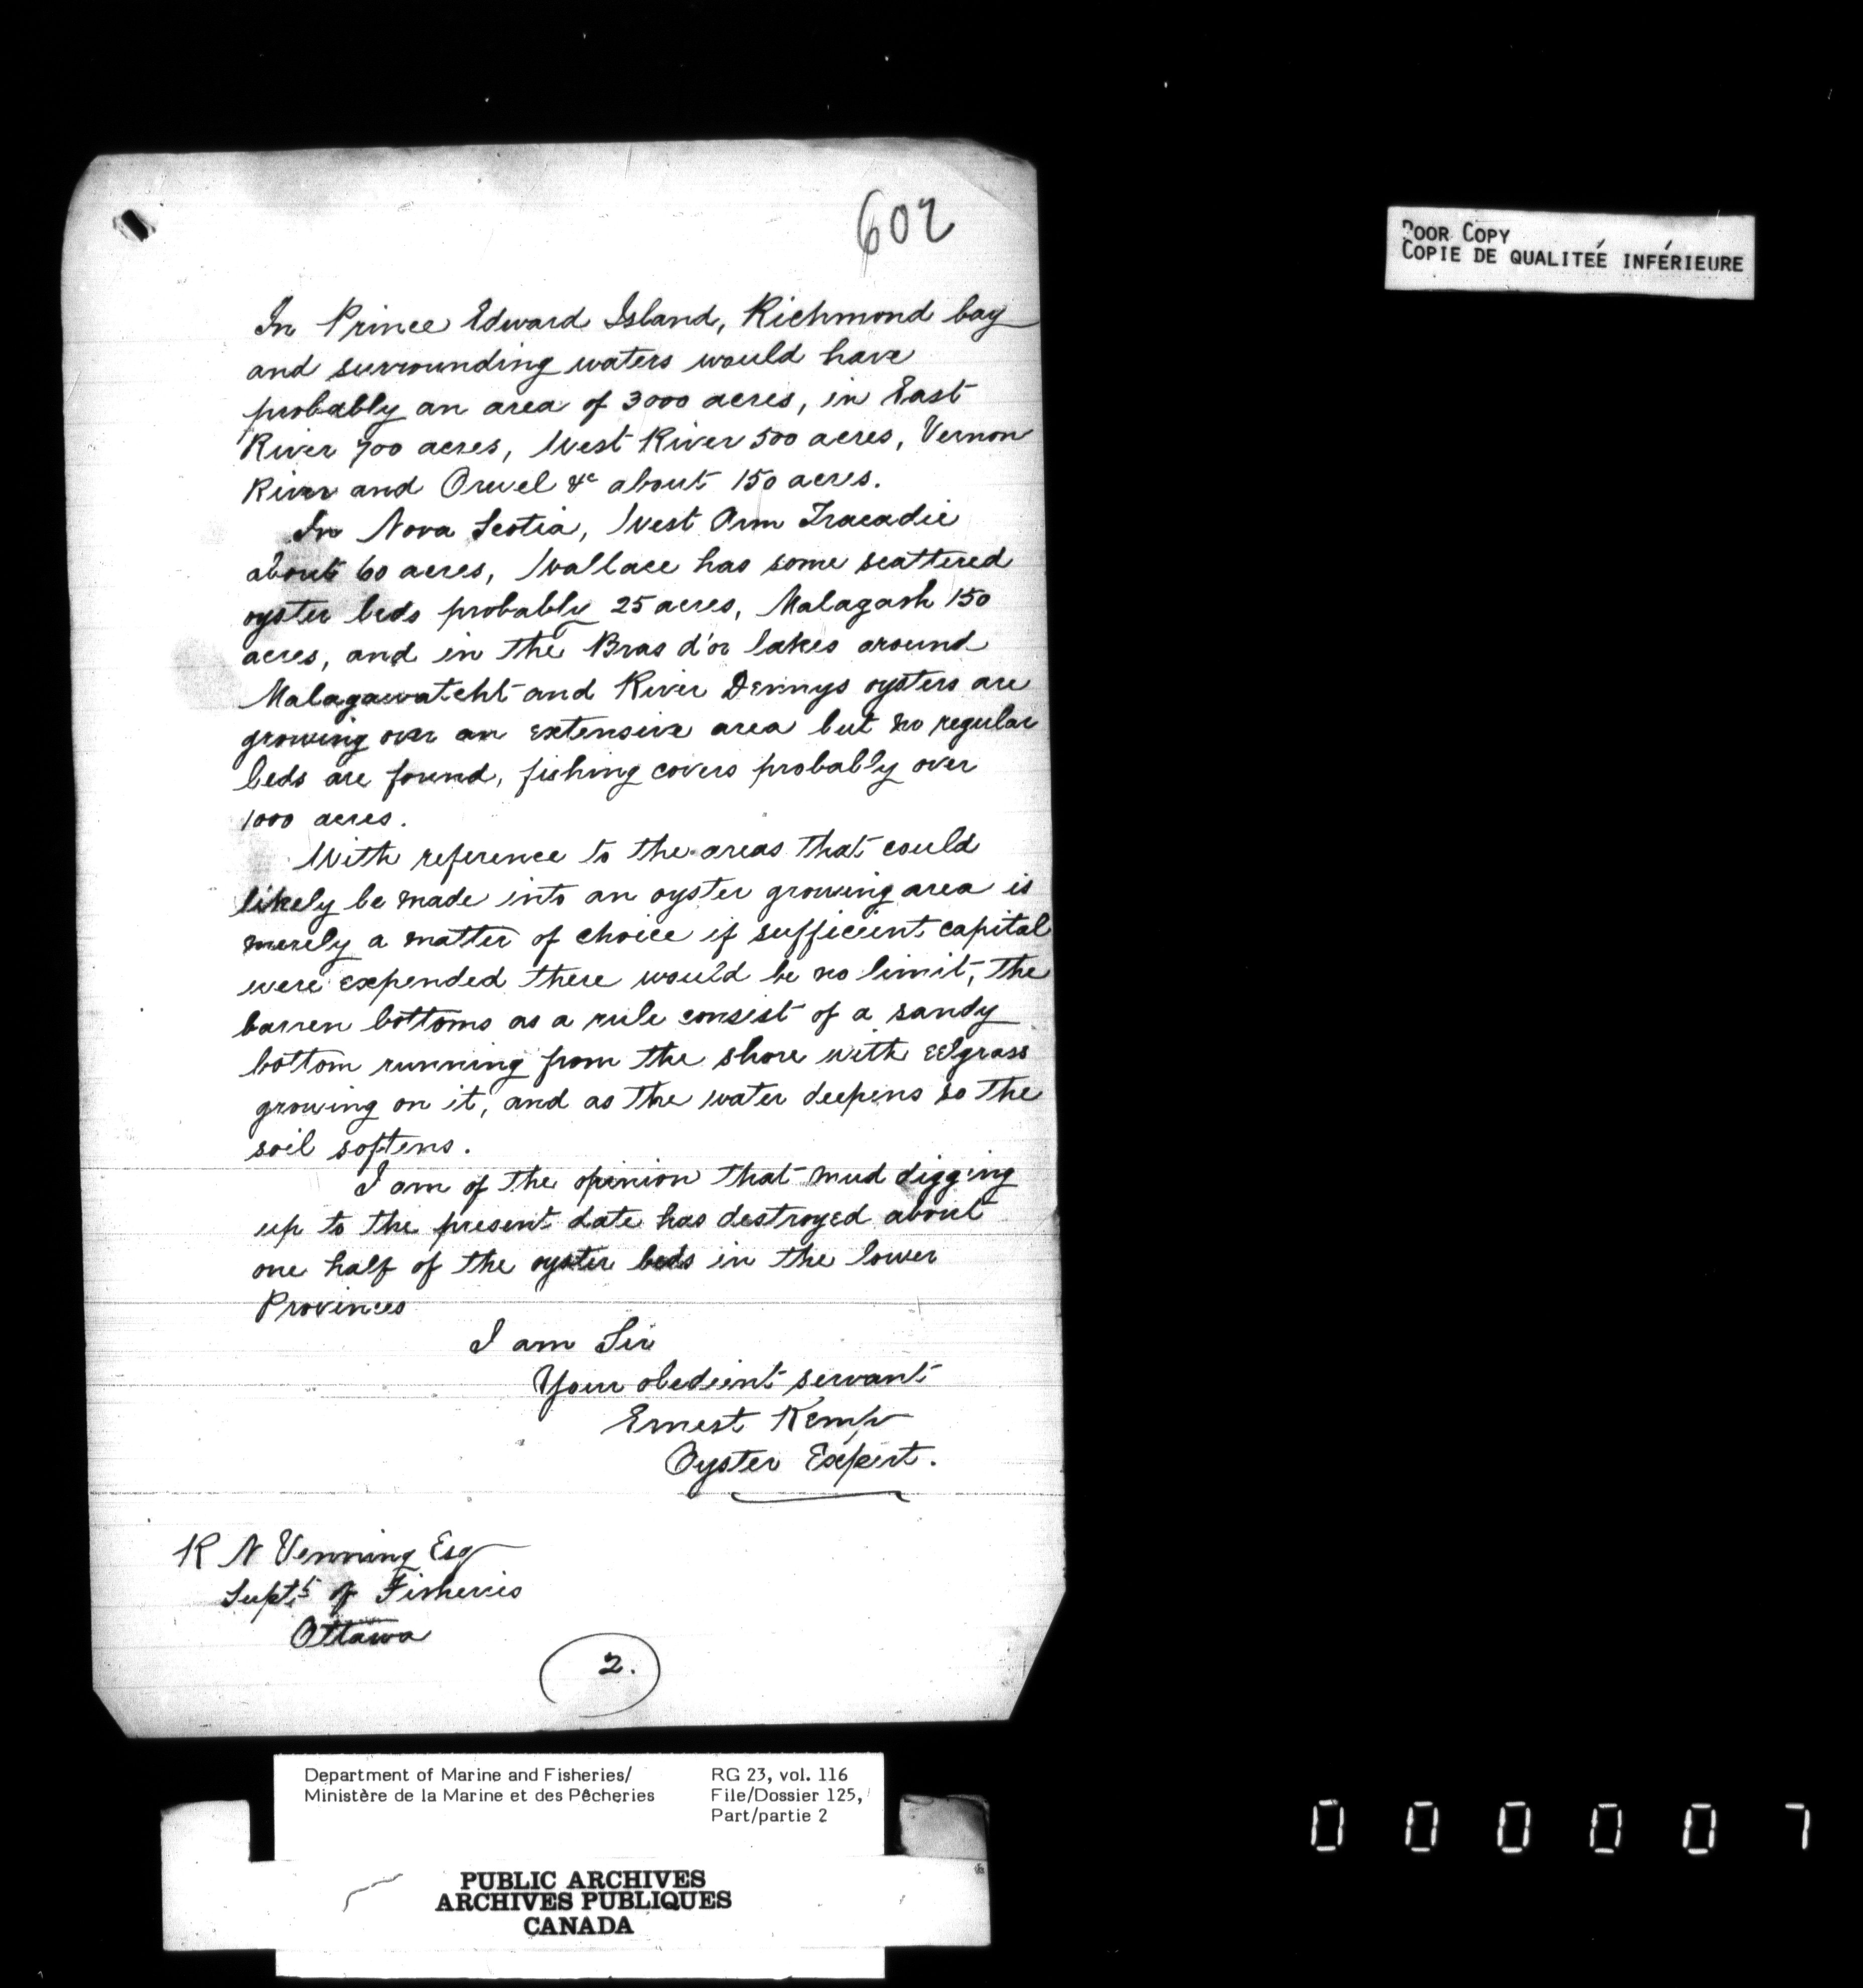 602
In Prince Edward Island, Richmond bay
and surrounding waters would have
probably an area of 3000 acres, in East
River 700 acres, West River 500 acres, Vernon
River and Orwel &c about 150 acres.
In Nova Scotia, West Arm Tracadie
about 60 acres, Wallace has some scattered
oyster beds probably 25 acres, Malagash 150
acres, and in the Bras d'or lakes around
Malagawatcht and River Dennys oysters are
growing over an extensive area but no regular
beds are found, fishing covers probably over
1000 acres.
With reference to the areas that could
likely be made into an oyster growing area is
merely a matter of choice if sufficient capital
were expended there would be no limit, the
barren bottoms as a rule consist of a sandy
bottom running from the shore with eelgrass
growing on it, and as the water deepens so the
soil softens.
I am of the opinion that mud digging
up to the present date has destroyed about
one half of the oyster beds in the lower
Provinces
I am Sir
Your obedient servant
Ernest Kemp
Oyster Expert.
R N Venning Esq
Supt. of Fisheries
Ottawa
2.
POOR COPY
COPIE DE QUALITEÉ INFÉRIEURE
Department of Marine and Fisheries/
Ministère de la Marine et des Pêcheries
RG 23, vol. 116
File/Dossier 125,
Part/partie 2
PUBLIC ARCHIVES
ARCHIVES PUBLIQUES
CANADA
000007